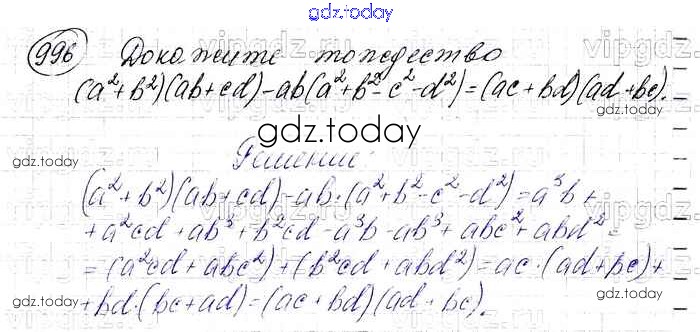 gdz.today
996 Докажите тождество
(a²+b²)(ab+cd)-ab(a²+b²-c²-d²)=(ac+bd)(ad+bc).
gdz.today
Решение:
(a²+b²)(ab+cd)-ab·(a²+b²-c²-d²)=a³b+
+a²cd+ab³+b²cd-a³b-ab³+abc²+abd²=
=(a²cd+abc²)+(b²cd+abd²)=ac·(ad+bc)+
+bd·(bc+ad)=(ac+bd)(ad+bc).
gdz.today